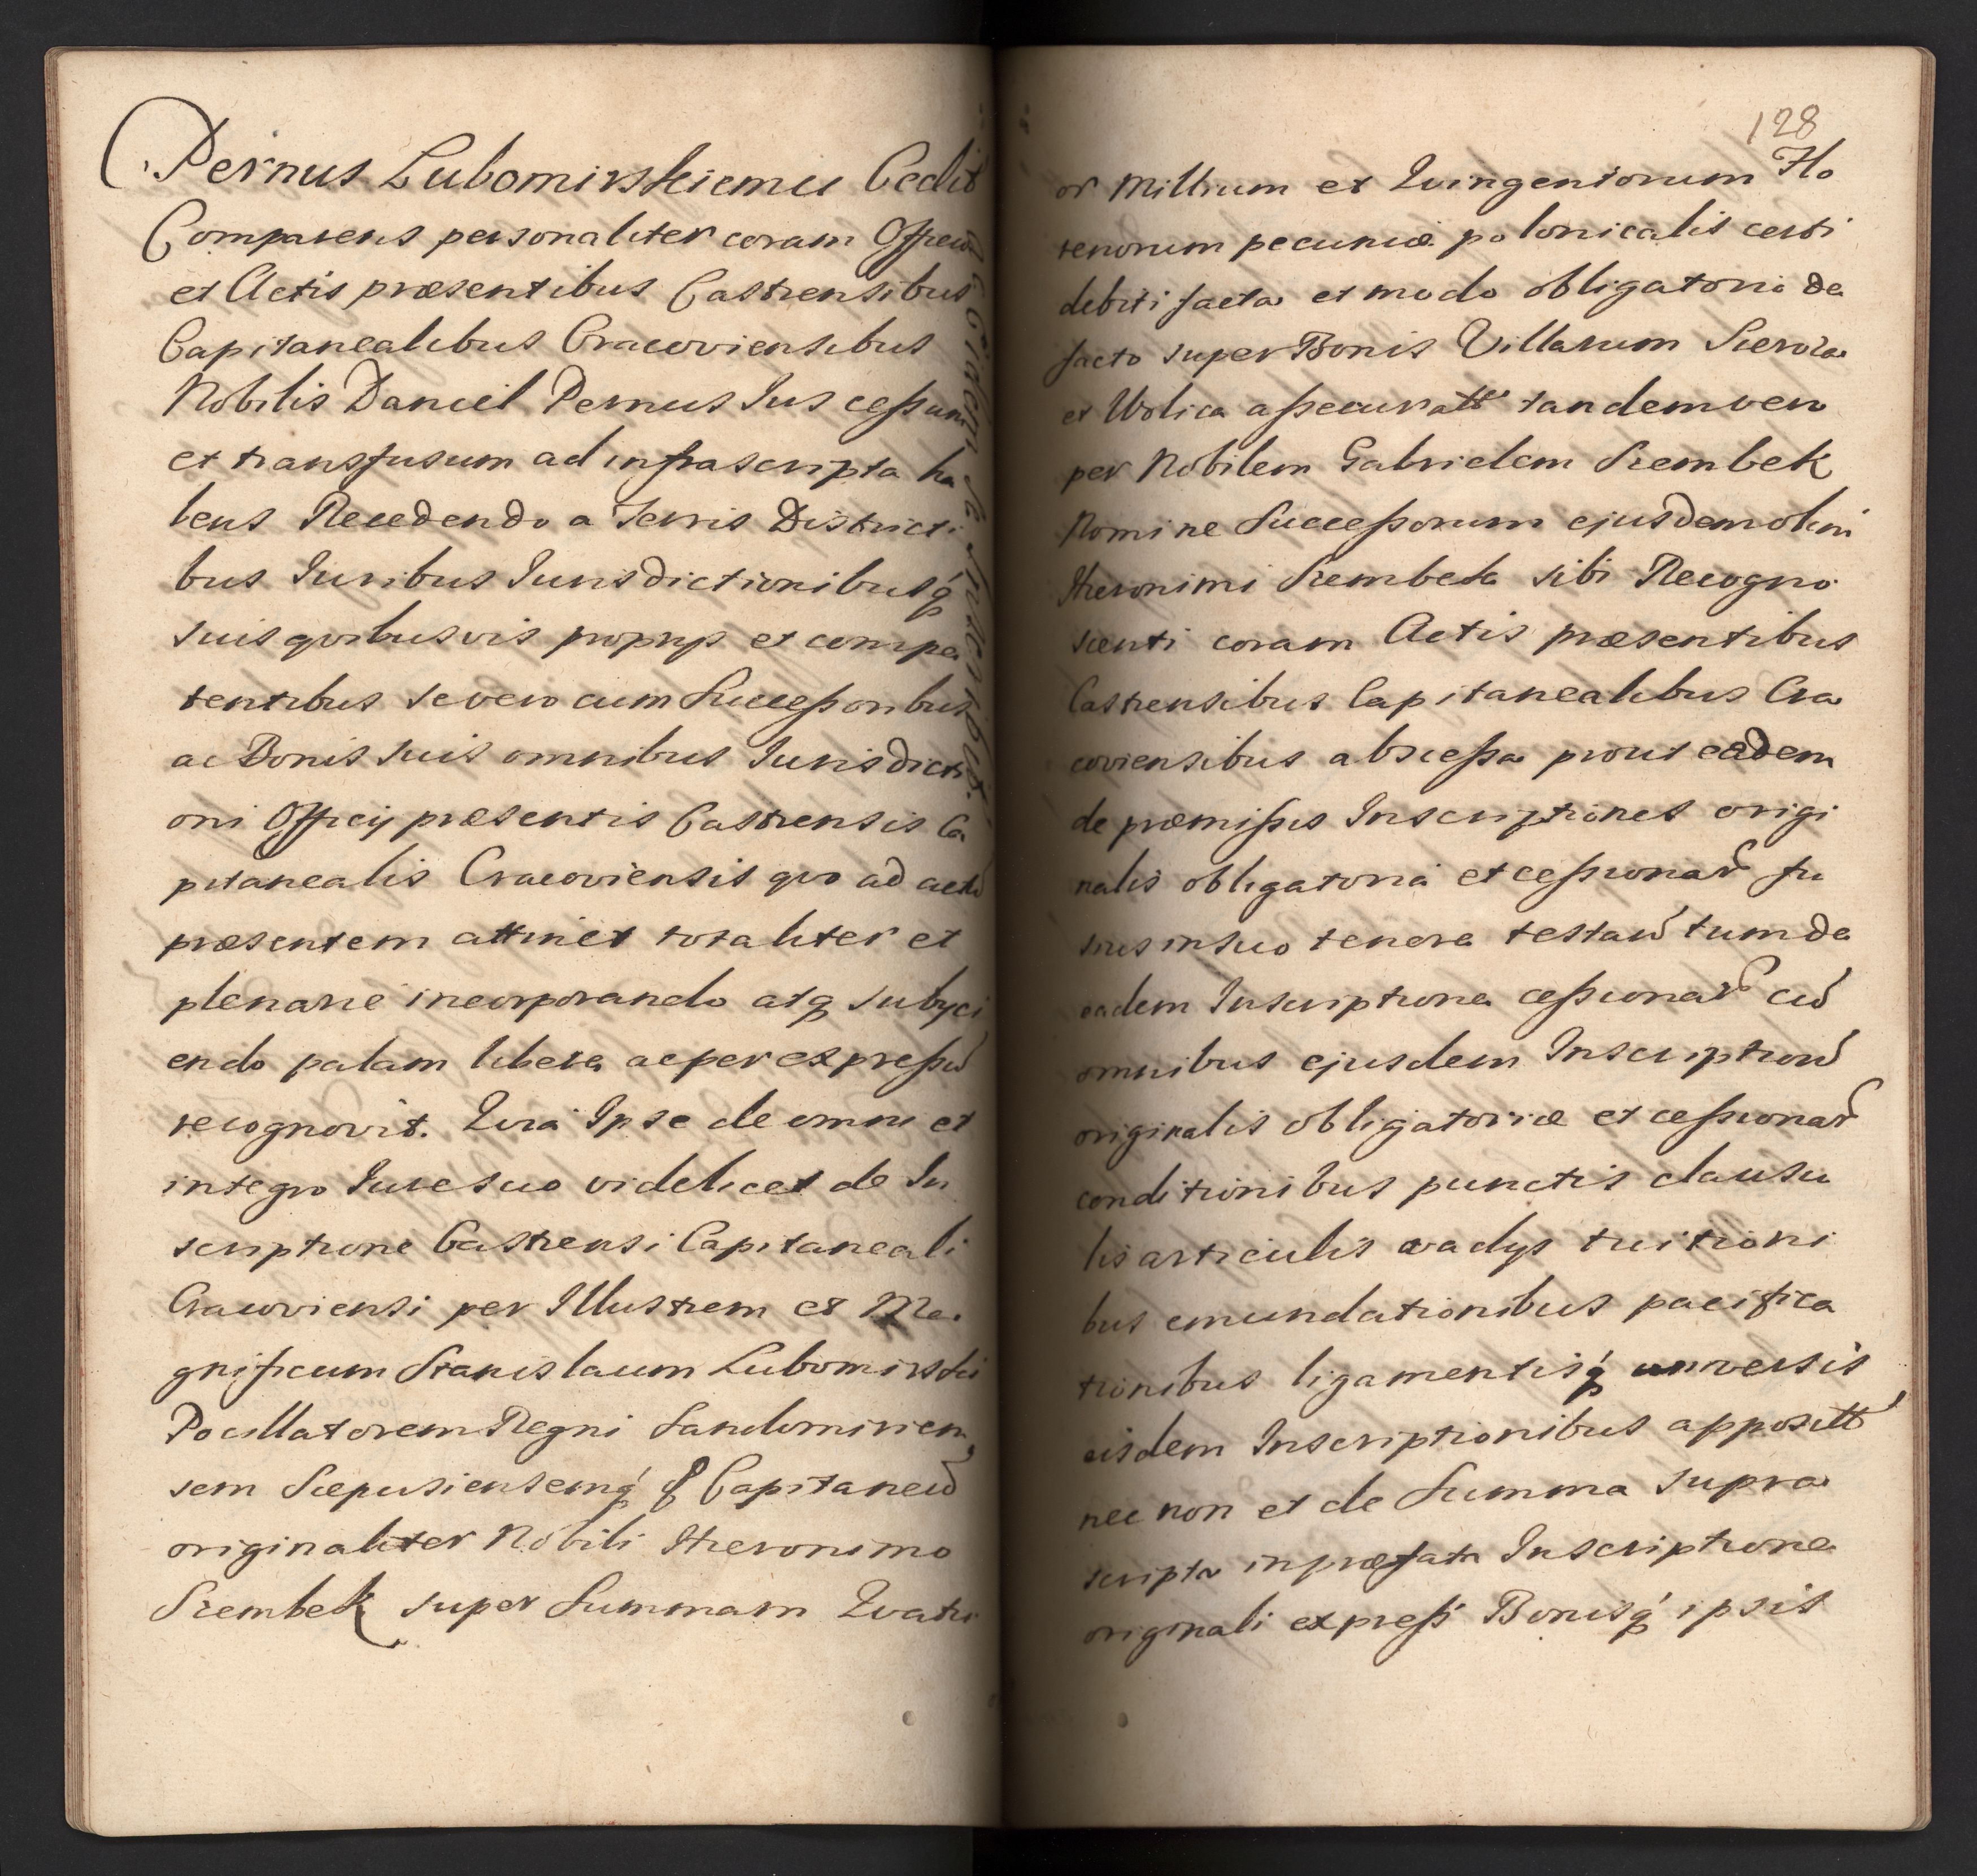 Pernus Lubomirskiemu Cedit
Comparens personaliter coram Officio
et Actis præsentibus Castrensibus
Capitanealibus Cracoviensibus
Nobilis Daniel Pernus Jus cessum
et transfusum ad infrascripta ha
bens Recedendo a Terris Districti
bus Juribus Jurisdictionibusq́
suis qvibusvis proprijs et compe
tentibus se vero cum Successoribus
ac Bonis suis omnibus Jurisdicti
oni Officij præsentis Castrensis Ca
pitanealis Cracoviensis qvo ad actū
præsentem attinet totaliter et
plenarie incorporando atq subyci
endo palam libere ac per expressū
recognovit. Qvia Ipse de omni et
integro Jure suo videlicet de In
scriptione Castrensi Capitaneali
Cracoviensi per Illustrem et Ma
gnificum Stanislaum Lubomirski
Pocillatorem Regni Sandomirien
sem Scepusiensemq́ & Capitaneū
originaliter Nobili Hieronimo
Szembek super Summam Qvatu
128
or Millium et Qvingentorum Flo
renorum pecuniæ polonicalis certi
debiti facta et modo obligatorio de
facto super Bonis Villarum Sieroza
et Wolica assecuratt tandem vero
per Nobilem Gabrielem Szembek
Nomine Successorum ejusdem olim
Hieronimi Szembeka sibi Recogno
scenti coram Actis præsentibus
Castrensibus Capitanealibus Cra
coviensibus abscessa prout eædem
de præmissis Inscriptiones origi
nalis obligatoria et cessionar fu
sius in suo tenore testanť tum de
eadem Inscriptione cessionar cū
omnibus ejusdem Inscriptionū
originalis obligatoriæ et cessionar
conditionibus punctis clausu
lis articulis vadys tuitioni
bus emundationibus pacifica
tionibus ligamentisq́ universis
eisdem Inscriptionibus appositt
nec non et de Summa supra
scripta in præfata Inscriptione
originali express Bonisq́ ipsis